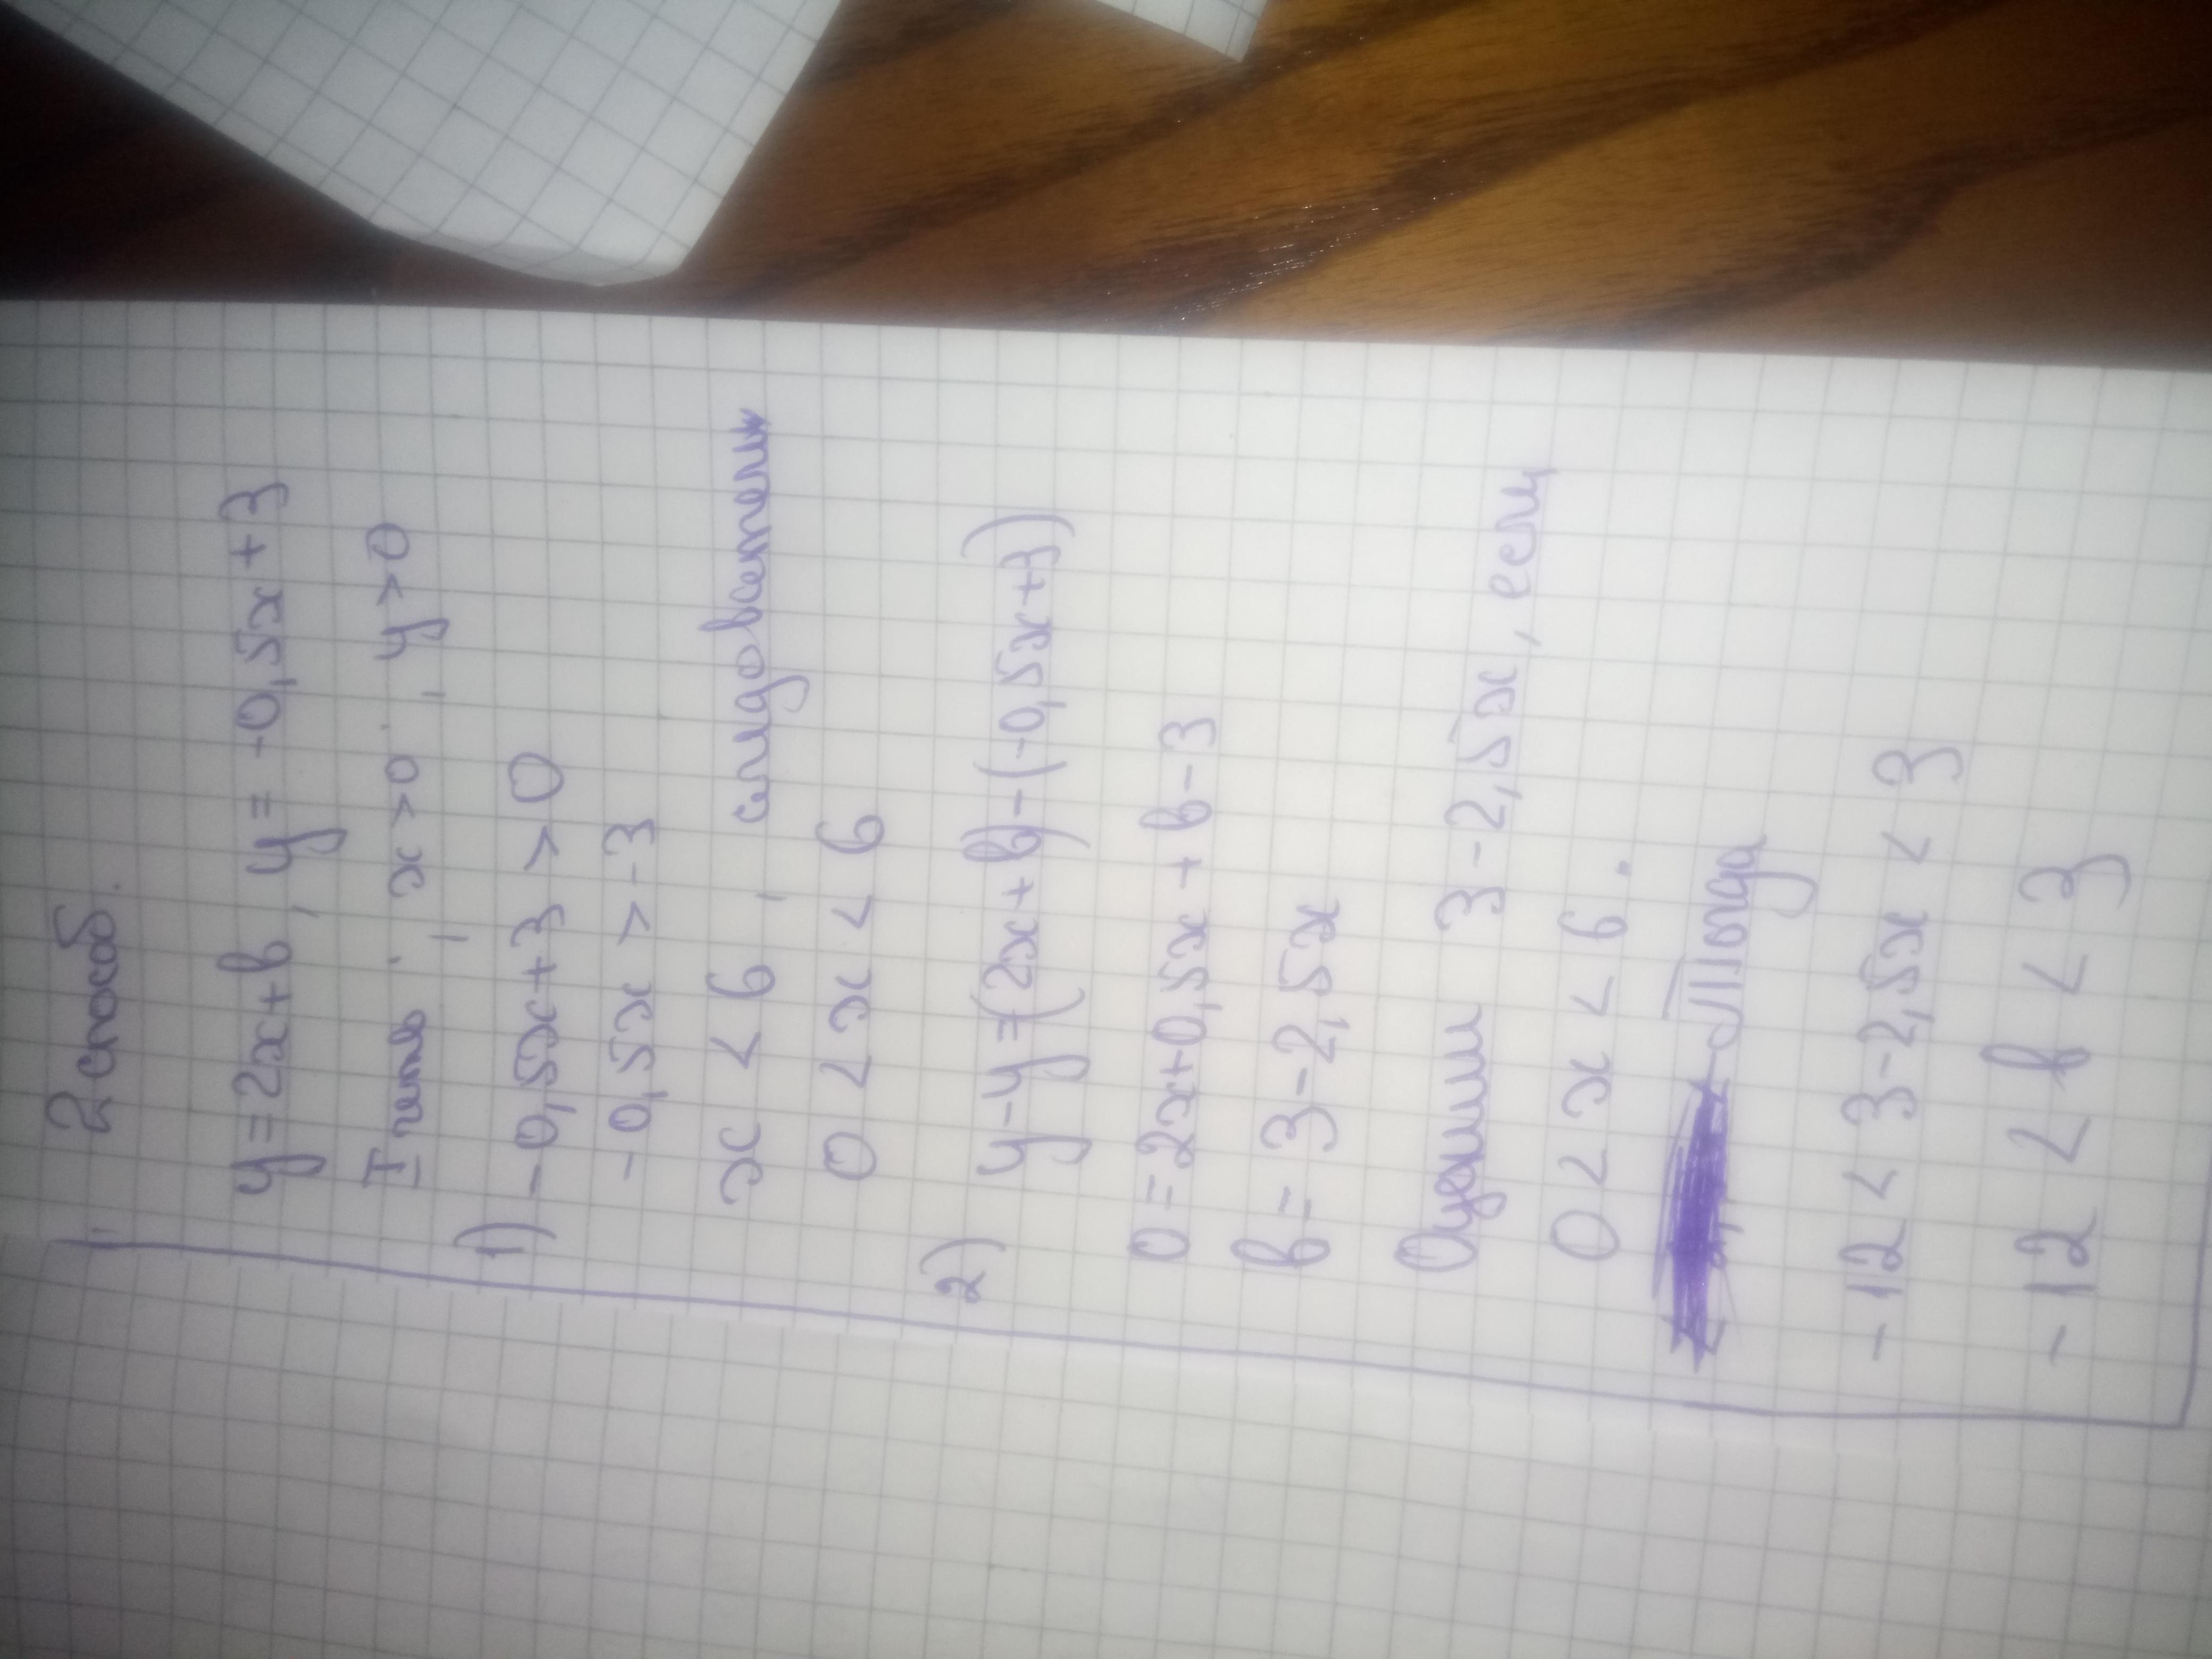 2 способ.
y = 2x + b, y = -0,5x + 3
I четв., x > 0, y > 0
1) -0,5x + 3 > 0
-0,5x > -3
x < 6, следовательн
0 < x < 6
2) y - y = (2x + b) - (-0,5x + 3)
0 = 2x + 0,5x + b - 3
b = 3 - 2,5x
Оценим 3 - 2,5x, если
0 < x < 6.
Тогда
-12 < 3 - 2,5x < 3
-12 < b < 3